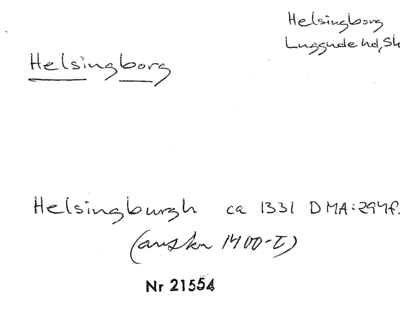 Helsingborg
Luggude hd, Sk
Helsingborg
Helsingburgh ca 1331 DMA:294f.
(avskr 1400-t)
Nr 21554